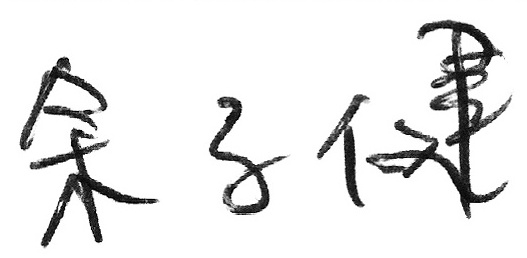 余子健